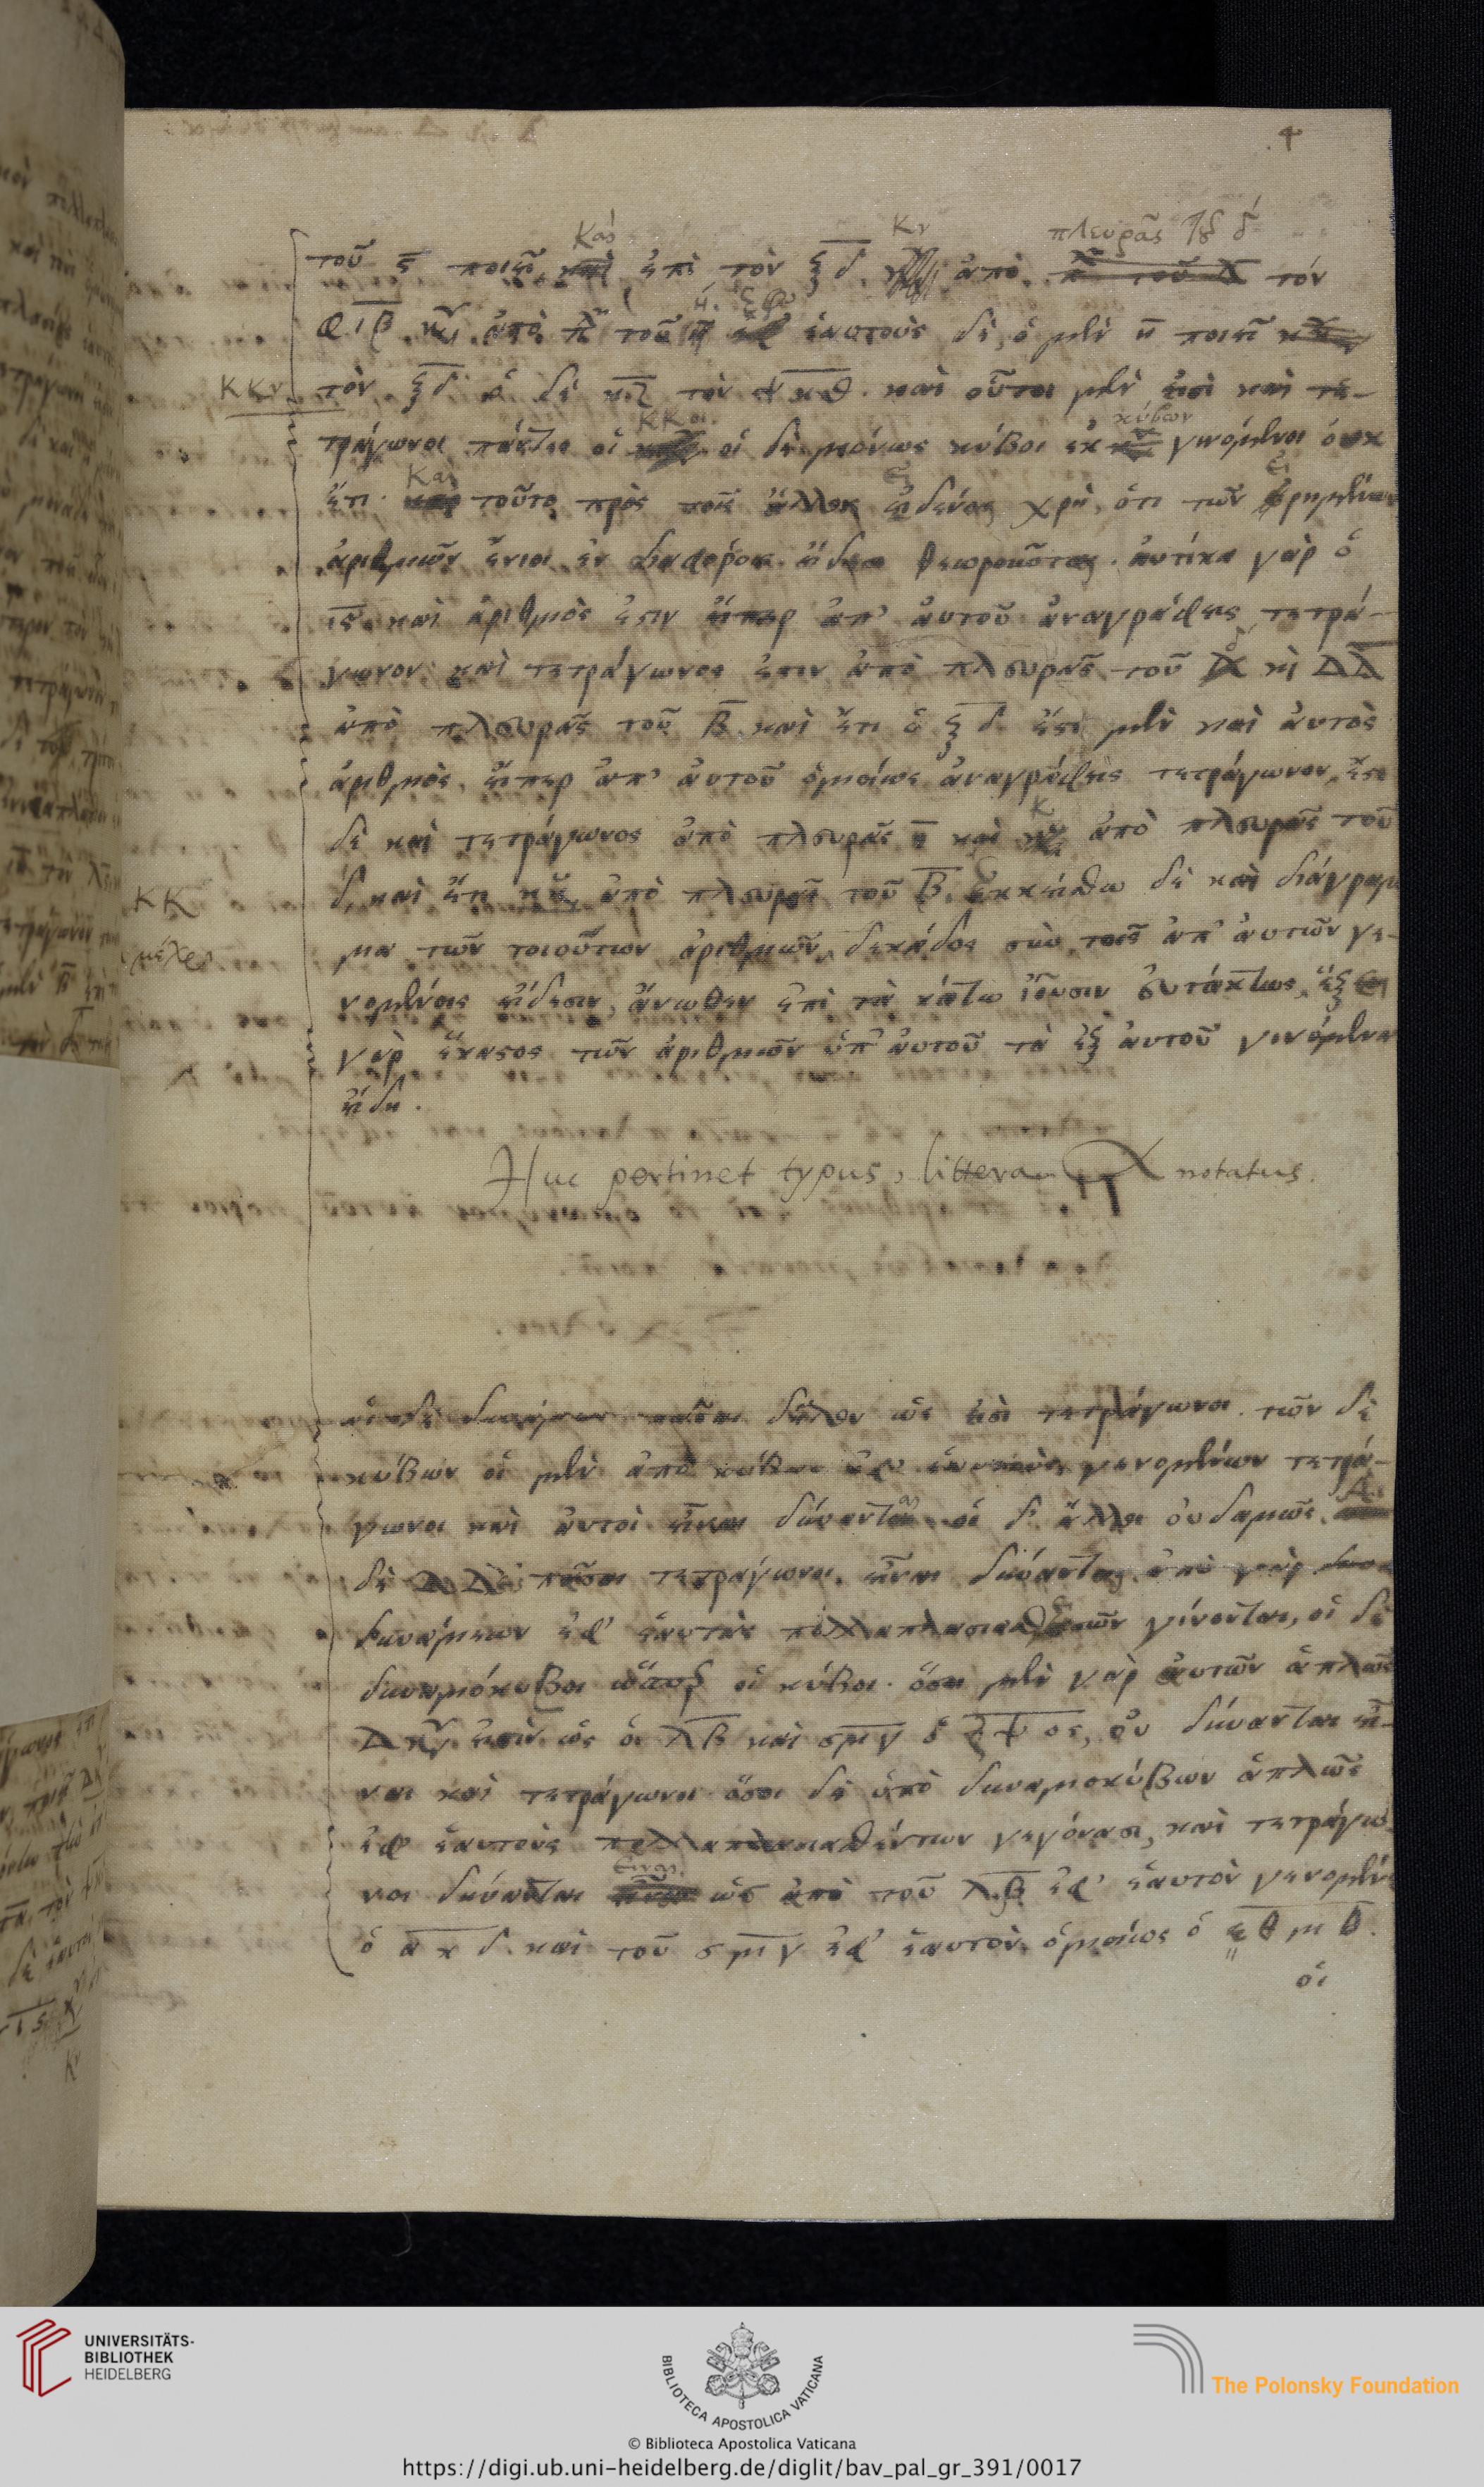 4
Καὶ Κν πλευρᾶς τοῦ δ
τοῦ ϛ ποιεῖ, ἐπὶ τὸν ξδ ἀπὸ π τοῦ Δ τὸν
φιβ ἀπὸ τοῦ ἑαυτοὺς δὲ, ὁ μὲν η ποιεῖ
ΚΚν τὸν ξδ ὁ δὲ κζ τὸν ψκθ. καὶ οὗτοι μὲν εἰσὶ καὶ τε-
ΚΚοι. κύβων
τράγωνοι πάντες οἱ οἱ δὲ μόνως κύβοι ἐκ γινόμενοι οὐκ
Καὶ
ἔτι. τοῦτο πρὸς τοῖς ἄλλοις εἰδέναι χρὴ, ὅτι τῶν εἰρημένων
ἀριθμῶν ἔνιοι ἐν διαφόροις εἴδεσι θεωροῦνται. αὐτίκα γὰρ ὁ
ιϛ καὶ ἀριθμός ἐστιν εἴπερ ἀπ' αὐτοῦ ἀναγράψεις τετρά-
γωνον καὶ τετράγωνός ἐστιν ἀπὸ πλευρᾶς τοῦ δ κὶ ΔΔ
ἀπὸ πλευρᾶς τοῦ β καὶ ἔτι ὁ ξδ ἔστι μὲν καὶ αὐτὸς
ἀριθμὸς, εἴπερ ἀπ' αὐτοῦ ὁμοίως ἀναγράψεις τετράγωνον, ἔστι
δὲ καὶ τετράγωνος ἀπὸ πλευρᾶς η καὶ Κ ἀπὸ πλευρᾶς τοῦ
ΚΚ δ, καὶ ἔτι ἀπὸ πλευρᾶς τοῦ β. Ἐκκείσθω δὲ καὶ διάγραμ
μέχρι μα τῶν τοιούτων ἀριθμῶν δεκάδος σὺν τοῖς ἀπ' αὐτῶν γε-
νομένοις εἴδεσιν, ἄνωθεν ἐπὶ τὰ κάτω ἰοῦσιν εὐτάκτως, ἕξει
γὰρ ἕκαστος τῶν ἀριθμῶν ὑπ' αὐτοῦ τὰ ἐξ αὐτοῦ γινόμενα
εἴδη.
Huc pertinet typus, littera α notatus.
αἱ δὲ δυνάμεις πᾶσαι δῆλον ὡς εἰσὶ τετράγωνοι. τῶν δὲ
κύβων οἱ μὲν ἀπὸ κύβων ἐφ ἑαυτοὺς γενομένων τετρά-
γωνοι καὶ αὐτοὶ εἶναι δύνανται οἱ δ' ἄλλοι οὐδαμῶς. Αἱ
δὲ ΔΔ πᾶσαι τετράγωνοι εἶναι δύνανται, ἀπὸ γὰρ
δυνάμεων ἐφ' ἑαυτὰς πολλαπλασιασθεισῶν γίνονται, οἱ δὲ
δυναμόκυβοι ὥσπερ οἱ κύβοι. ὅσοι μὲν γὰρ αὐτῶν ἁπλῶς
Δκυ εἰσὶν ὡς ὁ λβ καὶ σμγ ὁ ζψοϛ, οὐ δύνανται εἶ-
ναι καὶ τετράγωνοι ὅσοι δὲ ἀπὸ δυναμοκύβων ἁπλῶς
ἐφ ἑαυτοὺς πολλαπλασιασθέντων γεγόνασι, καὶ τετράγω
εἶναι
νοι δύνανται ὡς ἀπὸ τοῦ λβ ἐφ' ἑαυτὸν γενομέν
ὁ ακδ. καὶ τοῦ σμγ ἐφ' ἑαυτὸν ὁμοίως ὁ εθμθ.
οἱ
UNIVERSITÄTS-
BIBLIOTHEK
HEIDELBERG
BIBLIOTECA APOSTOLICA VATICANA
The Polonsky Foundation
© Biblioteca Apostolica Vaticana
https://digi.ub.uni-heidelberg.de/diglit/bav_pal_gr_391/0017